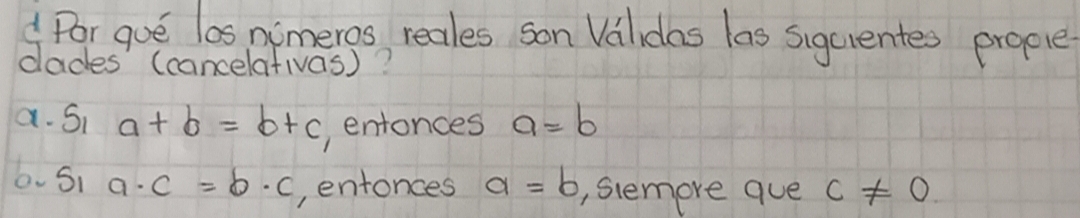 ¿Por qué los números reales son Válidas las siguientes propie-
dades (cancelativas)?
a. Si a + b = b + c, entonces a = b
b. Si a · c = b · c, entonces a = b, siempre que c ≠ 0.